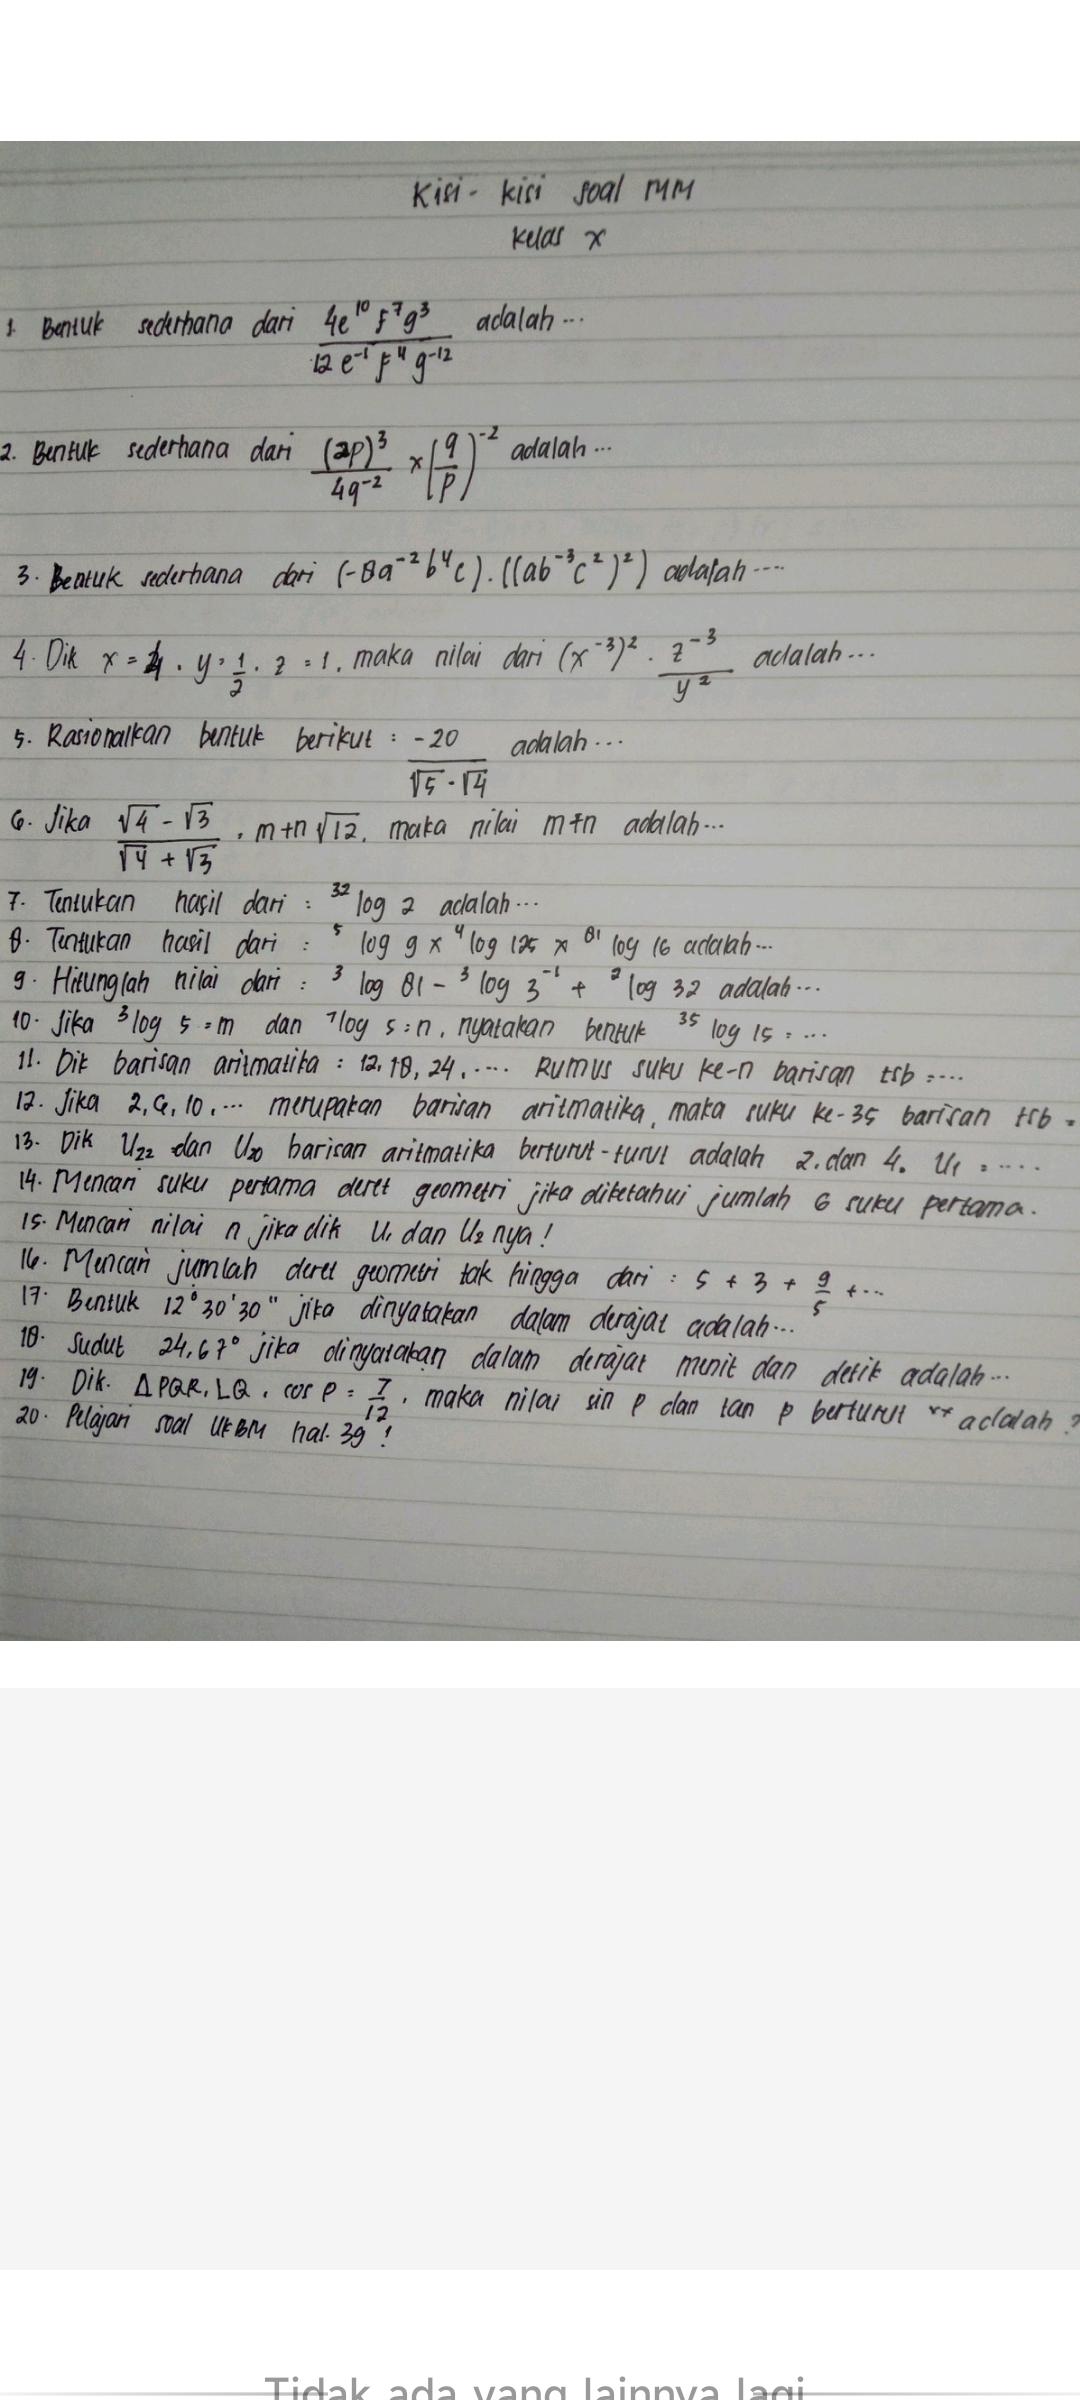 Kisi - kisi soal MM
Kelas X
1. Bentuk sederhana dari 4e¹⁰ f⁷g³ / 12 e⁻¹ f⁴ g⁻¹² adalah ...
2. Bentuk sederhana dari (2p)³ / 4q⁻² × (q/p)⁻² adalah ...
3. Bentuk sederhana dari (-8a⁻²b⁴c) . ((ab⁻³c²)²) adalah ....
4. Dik x = 4 . y = 1/2 . z = 1 , maka nilai dari (x⁻³)² . z⁻³ / y² adalah ...
5. Rasionalkan bentuk berikut : -20 / √5 - √4 adalah ...
6. Jika √4 - √3 / √4 + √3 , m+n √12 , maka nilai m+n adalah ...
7. Tentukan hasil dari : ³² log 2 adalah ...
8. Tentukan hasil dari : ⁵ log 9 × ⁴ log 125 × ⁸¹ log 16 adalah ...
9. Hitunglah nilai dari : ³ log 81 - ³ log 3⁻¹ + ² log 32 adalah ...
10. Jika ³log 5 = m dan ⁷log 5 = n , nyatakan bentuk ³⁵ log 15 = ...
11. Dik barisan aritmatika : 12, 18, 24, .... Rumus suku ke-n barisan tsb = ....
12. Jika 2, 6, 10, ... merupakan barisan aritmatika, maka suku ke-35 barisan tsb =
13. Dik U₂₂ dan U₂₀ barisan aritmatika berturut-turut adalah 2. dan 4. U₁ = .....
14. Mencari suku pertama deret geometri jika diketahui jumlah 6 suku pertama.
15. Mencari nilai n jika dik U₁ dan U₂ nya !
16. Mencari jumlah deret geometri tak hingga dari : 5 + 3 + 9/5 + ...
17. Bentuk 12° 30' 30" jika dinyatakan dalam derajat adalah ...
18. Sudut 24,67° jika dinyatakan dalam derajat menit dan detik adalah ...
19. Dik. Δ PQR, LQ , cos P = 7/12 , maka nilai sin P dan tan P berturut adalah ?
20. Pelajari soal UKBM hal. 39 !
Tidak ada yang lainnya lagi